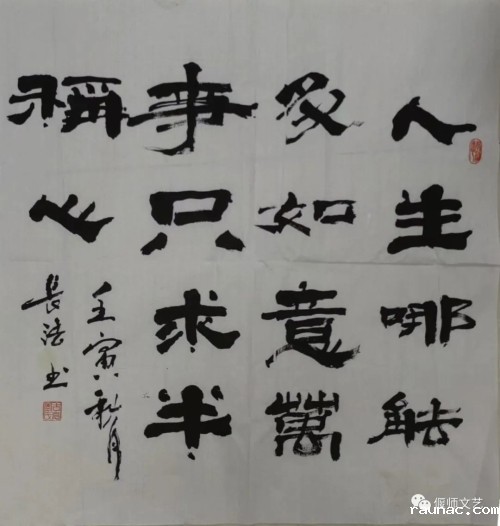 人生哪能
多如意萬
事只求半
稱心
壬寅月
長书
偃师文艺
raunac.com